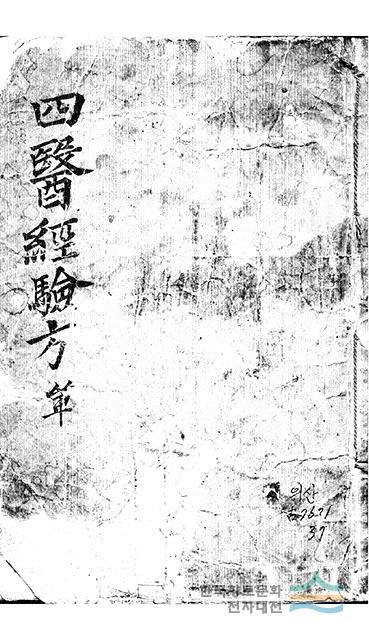 四醫經驗方 單
의산
古7671
37
한국향토문화
전자대전